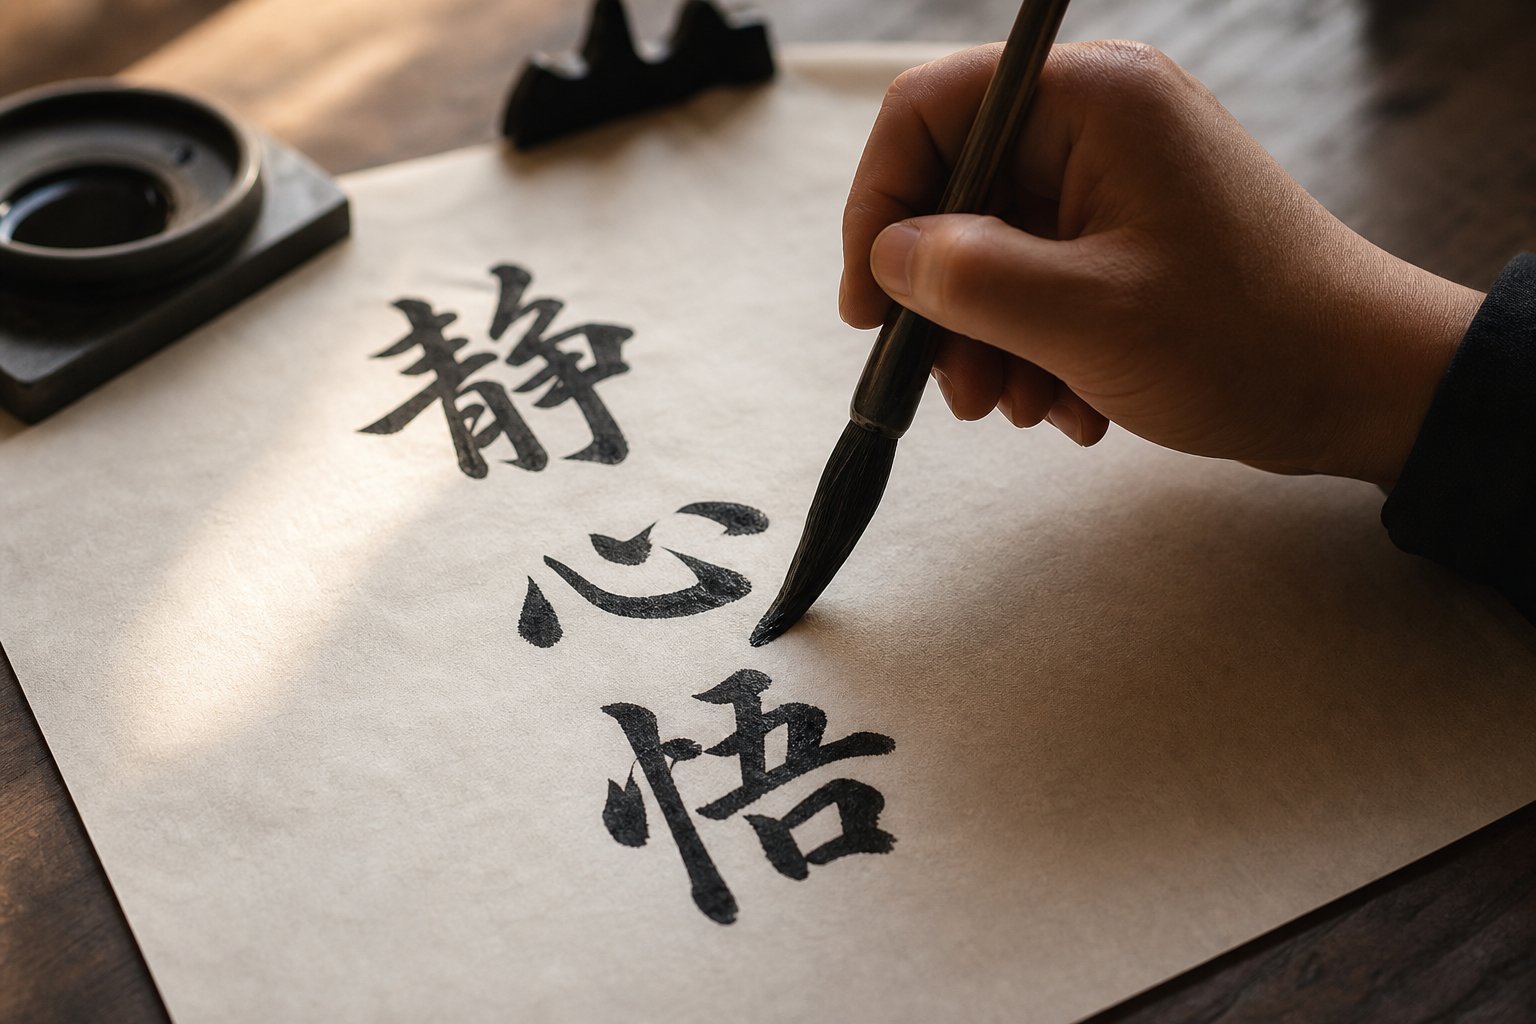 静心悟